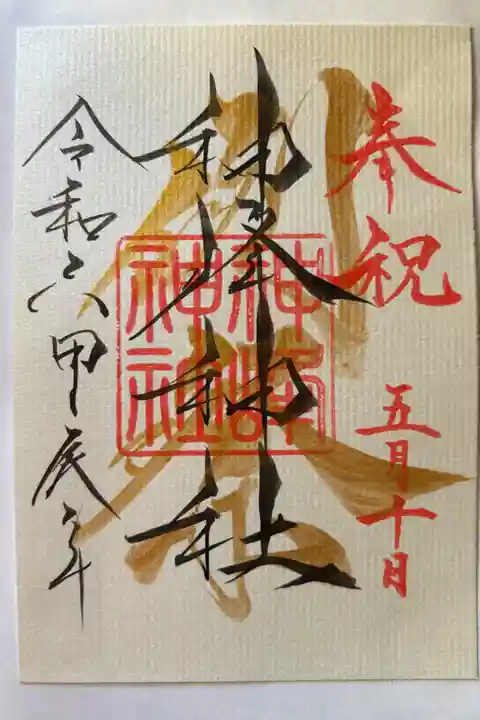 奉祝
五月十日
神峰神社
神峰
神社
令和六甲辰年